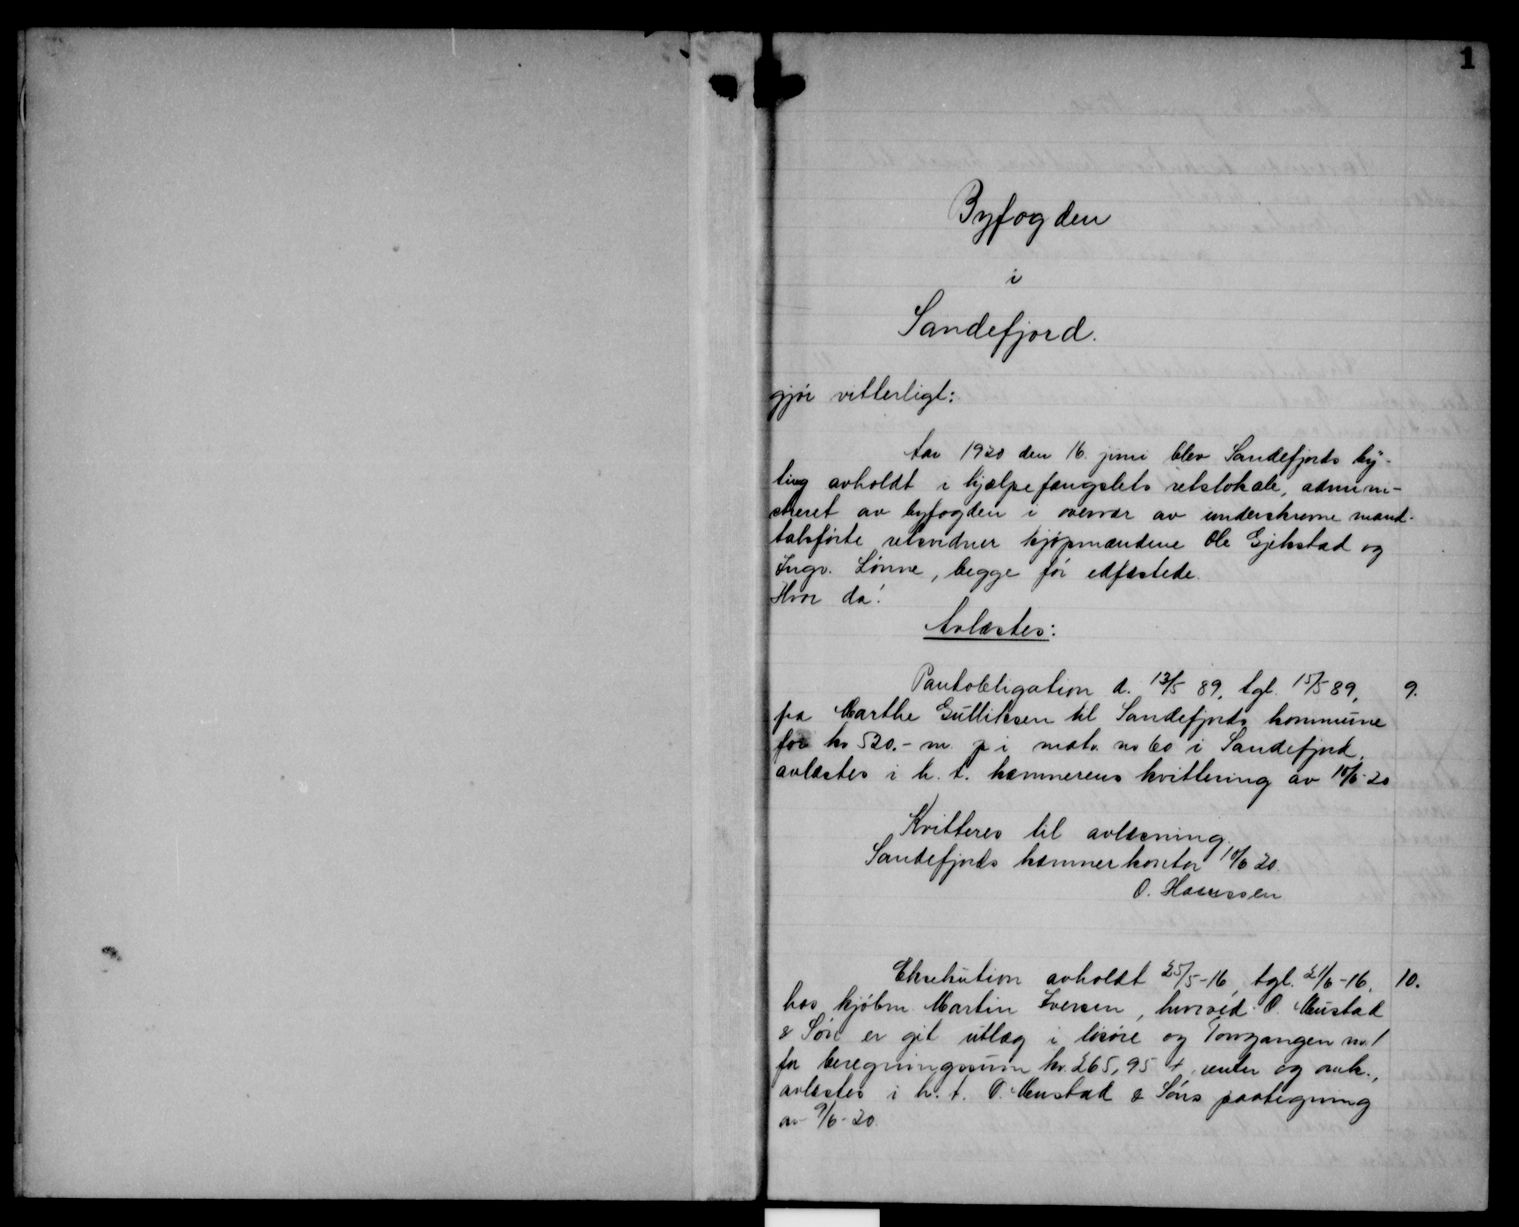 1
Byfogden
i
Sandefjord.
gjør vitterligt:
Aar 1920 den 16. juni blev Sandefjords by-
ting avholdt i hjælpefængslets retslokale, admini-
streret av byfogden i overvær av underskrevne mand-
talsførte retsvidner kjøpmændene Ole Gjekstad og
Ingv. Lønne, begge før edfæstede.
Hvor da:
Avlæstes:
Pantobligation d. 13/5 89, tgl. 15/5 89, 9.
fra Marthe Gulliksen til Sandefjords kommune
for kr 520.- m. p i matr. no 60 i Sandefjord,
avlæstes i h. t. kæmnerens kvittering av 10/6-20
Kvitteres til avlæsning.
Sandefjords kæmnerkontor 10/6 20.
O. Haussen
Eksekution avholdt 25/5-16, tgl. 21/6-16, 10.
hos kjøbm. Martin Iversen, hvorved O. Mustad
& Søn er git utlæg i løsøre og Torvgangen nr. 1
for beregningssum kr. 265,95 + renter og omk.,
avlæstes i h. t. O. Mustad & Søns paategning
av 9/6-20.